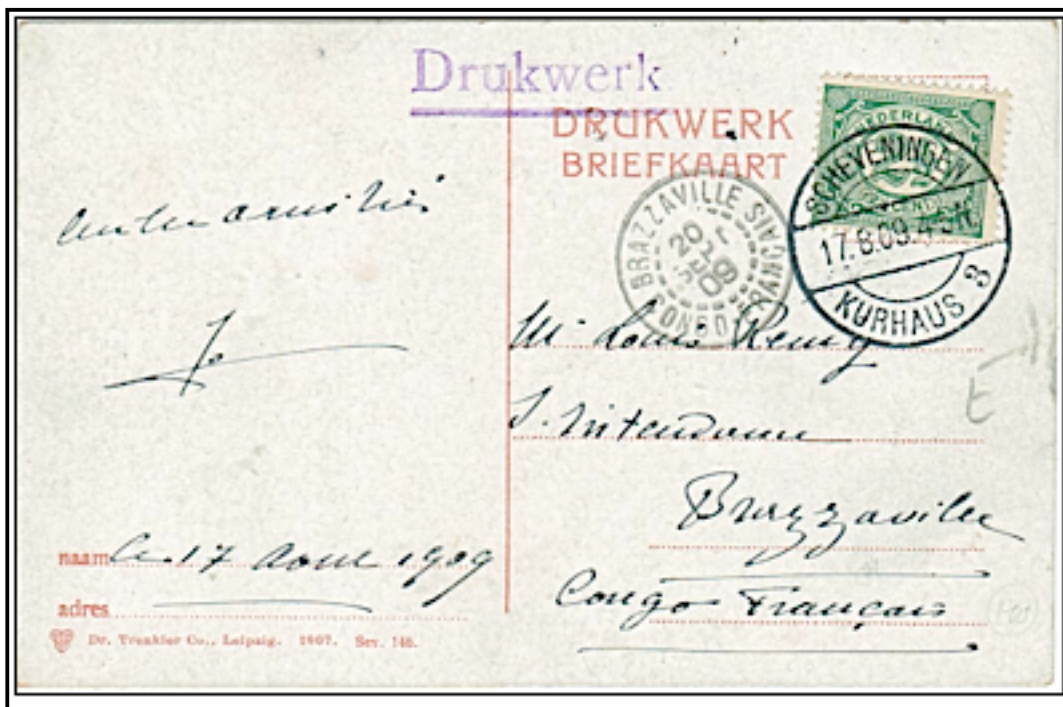 Drukwerk
DRUKWERK
BRIEFKAART
NEDERLAND
SCHEVENINGEN
17.8.09.4-5N.
KURHAUS 3
BRAZZAVILLE
CONGO-FRANÇAIS
20
09
amitiés
Mr Louis Remy
S. Intendance
Brazzaville
Congo Français
naam Le 17 Aout 1909
adres
Dr. Trenkler Co., Leipzig. 1907. Sev. 140.